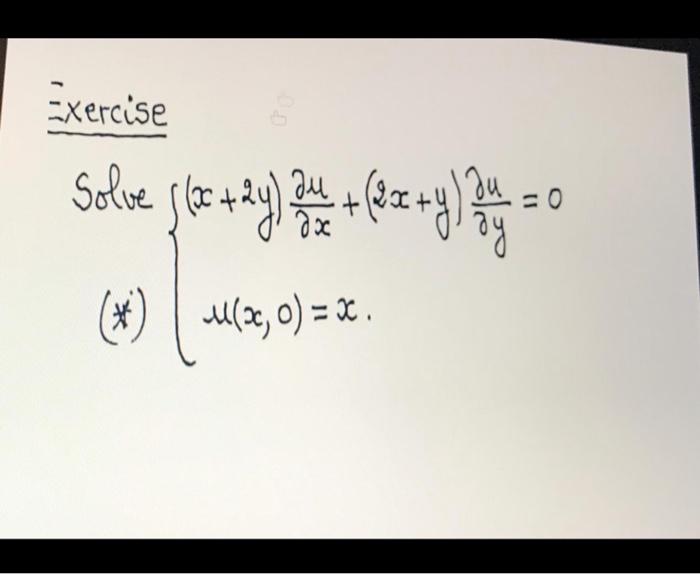 Exercise
Solve { (x + 2y) ∂u/∂x + (2x + y) ∂u/∂y = 0
(*) u(x, 0) = x.